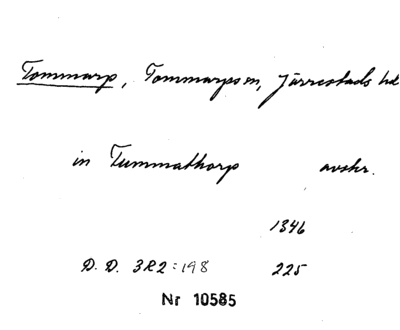 Tommarp, Tommarps sn, Järrestads hd
in Tummathorp avskr.
1346
D. D. 3R2:198 225
Nr 10585